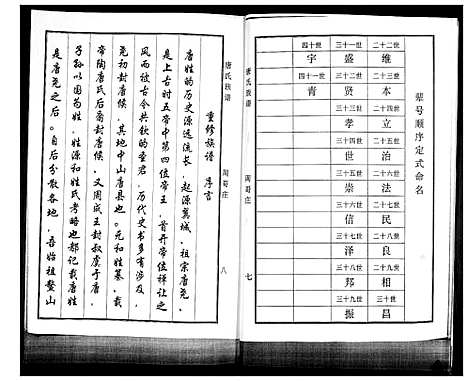 辈号顺序定式命名
二十二世 三十一世 四十世
维 盛 宇
二十三世 三十二世 四十一世
本 贤 青
二十四世 三十三世
立 孝
二十五世 三十四世
治 世
二十六世 三十五世
法 崇
二十七世 三十六世
民 信
二十八世 三十七世
良 泽
二十九世 三十八世
相 邦
三十世 三十九世
昌 振
唐氏族谱
周哥庄
七
唐氏族谱
周哥庄
八
重修族谱 序言
唐姓的历史源远流长，起源冀城，祖宗唐尧，
是上古时五帝中第四位帝王，首开帝位禅让之
风而被古今共钦的圣君，历代史书多有涉及，
尧初封唐侯，其地中山唐县也。元和姓纂，载
帝陶唐氏后裔封唐侯，又周成王封叔虞于唐，
子孙以国为姓，姓源和姓氏考略也都记载唐姓
是唐尧之后。自后分散各地，吾始祖鳌山